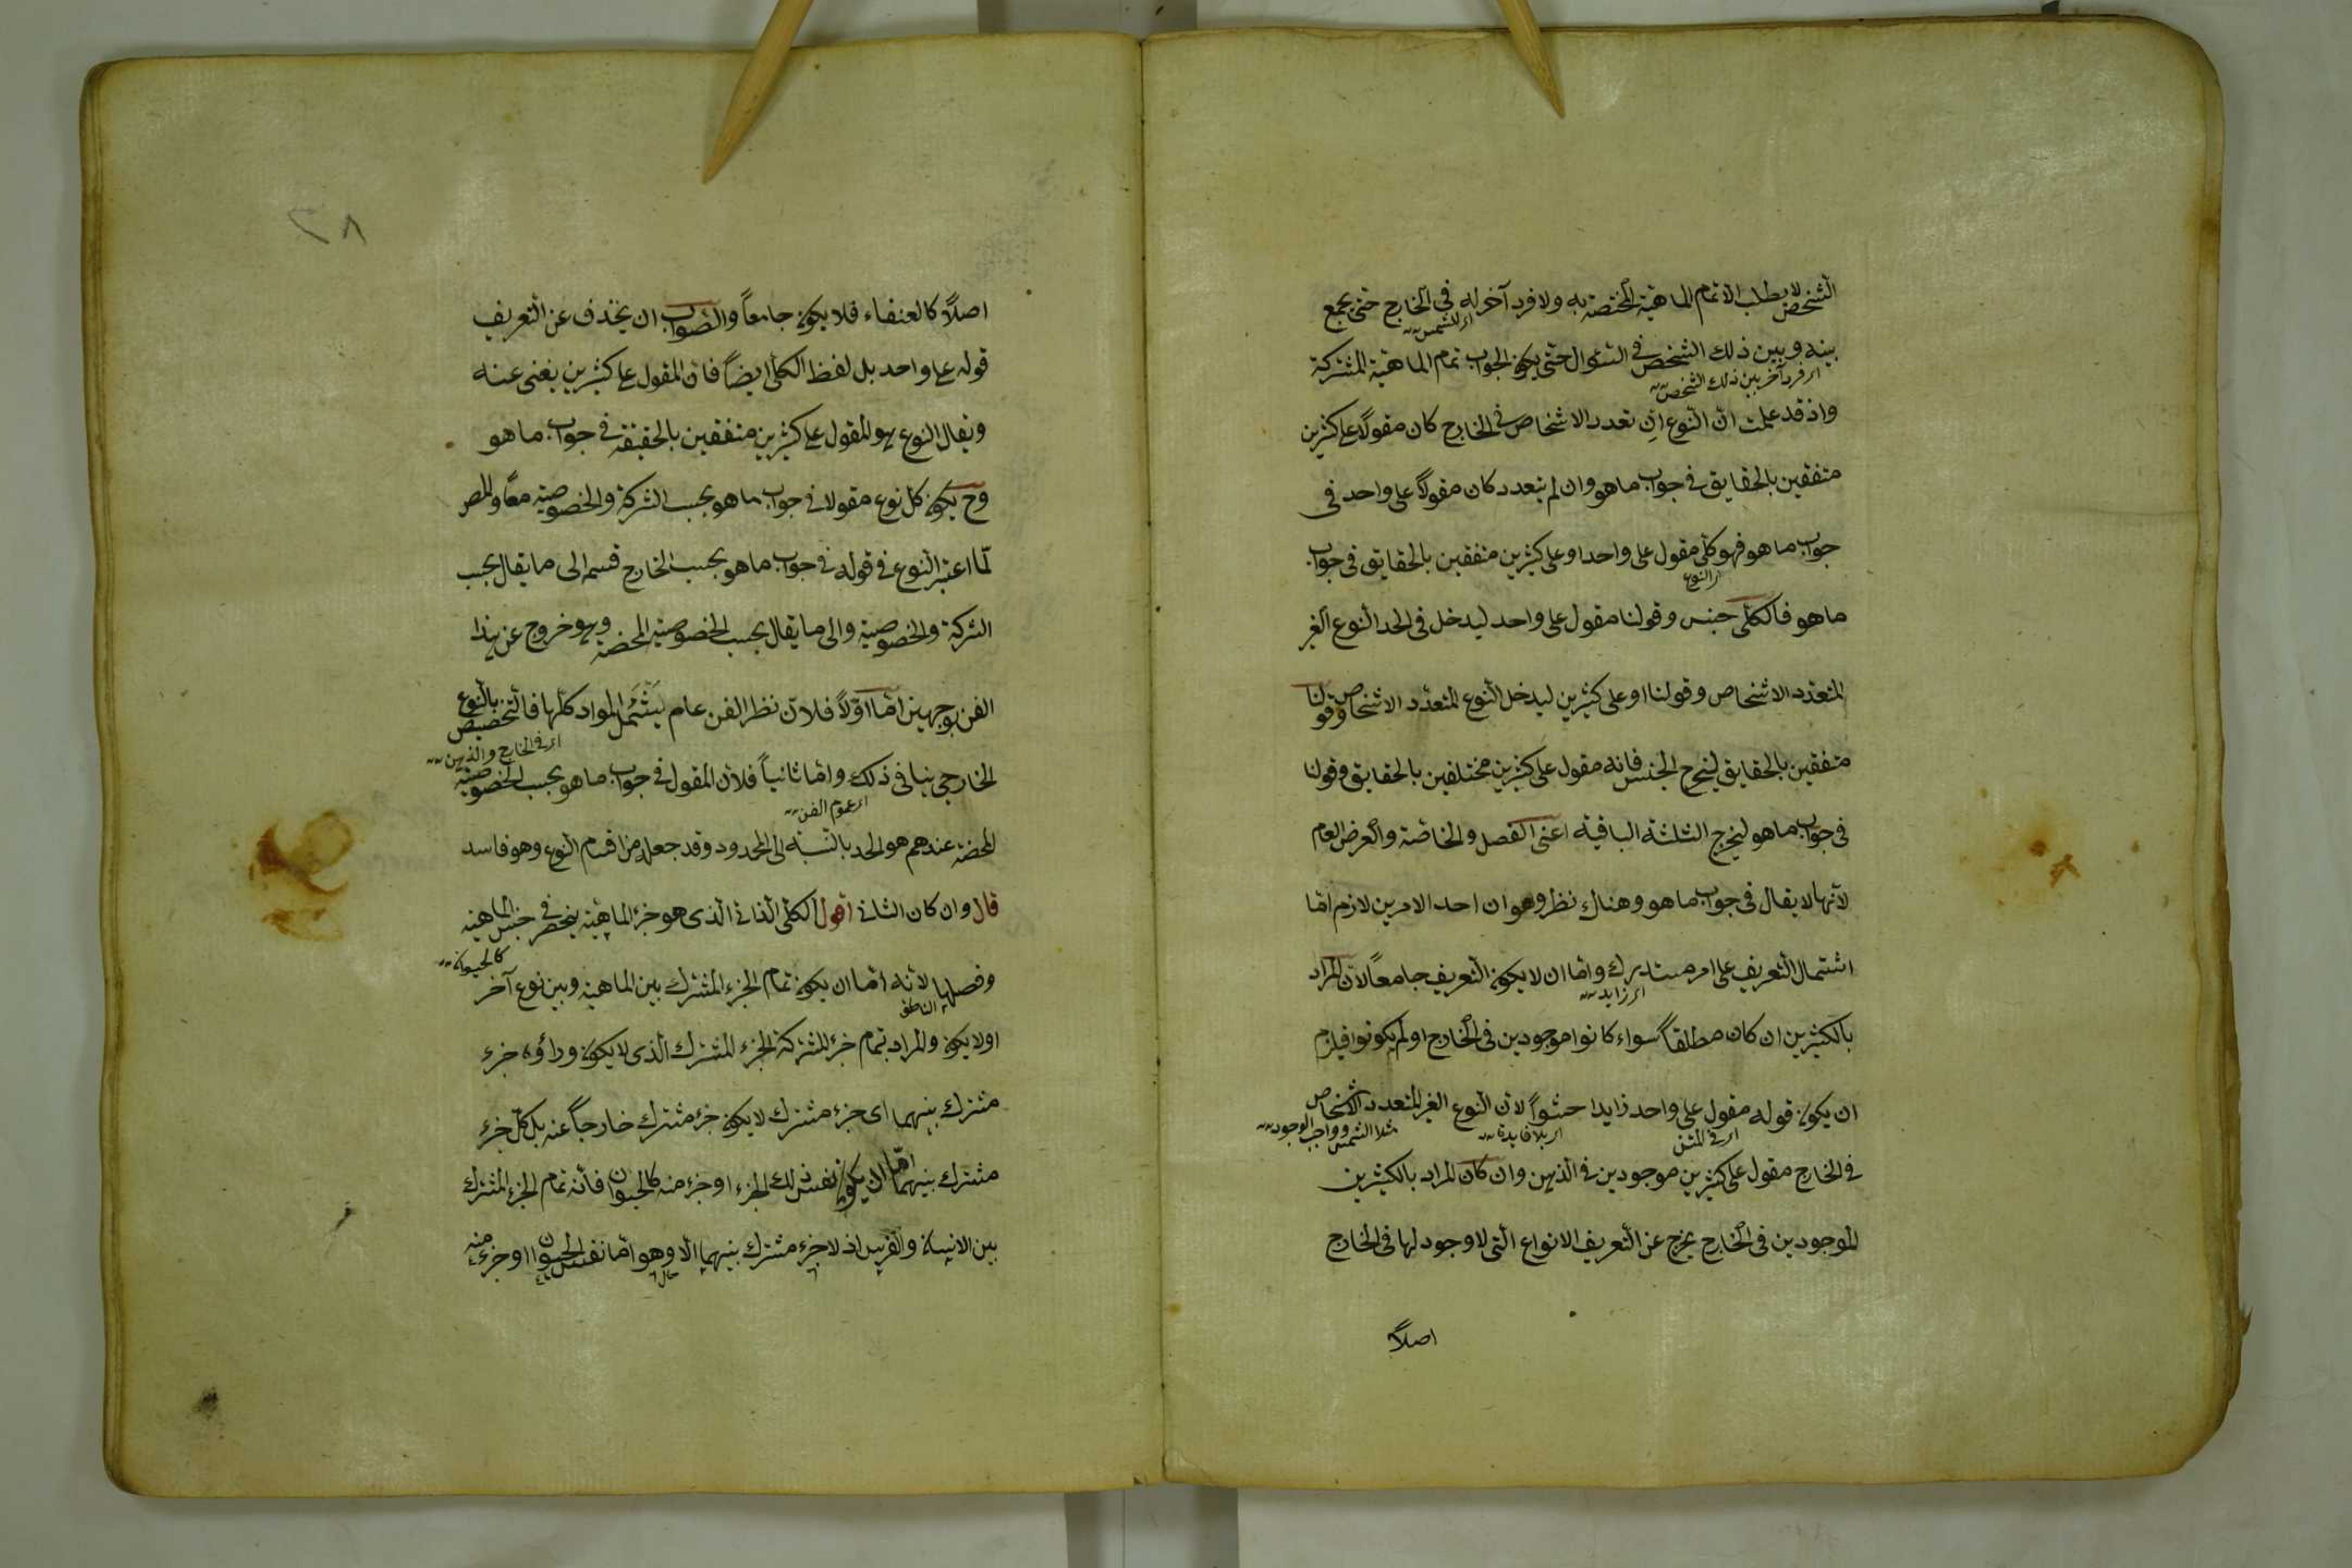 الشخص لا يطلب الا تمام الماهية المختصة به ولا فرد آخر له فى الخارج حتى يجمع
اى للشمس
بينه وبين ذلك الشخص فى السؤال حتى يكون الجواب تمام الماهية المشتركة
اى فرد آخر بين ذلك الشخص
واذ قد علمت ان النوع ان تعدد الاشخاص فى الخارج كان مقولاً على كثيرين
متفقين بالحقايق فى جواب ما هو وان لم يتعدد كان مقولاً على واحد فى
جواب ما هو فهو كلى مقول على واحد او على كثيرين متفقين بالحقايق فى جواب
اى النوع
ما هو فالكلى جنس وقولنا مقول على واحد ليدخل فى الحد النوع الغير
المتعدد الاشخاص وقولنا او على كثيرين ليدخل النوع المتعدد الاشخاص وقولنا
متفقين بالحقايق ليخرج الجنس فانه مقول على كثيرين مختلفين بالحقايق وقولنا
فى جواب ما هو ليخرج الثلثة الباقية اعنى الفصل والخاصة والعرض العام
لانها لا يقال فى جواب ما هو وهناك نظر وهو ان احد الامرين لازم امّا
اشتمال التعريف على امر مستدرك واما ان لا يكون التعريف جامعاً لان المراد
اى زايد
بالكثيرين ان كان مطلقاً سواء كانوا موجودين فى الخارج او لم يكونوا فيلزم
ان يكون قوله مقول على واحد زايدا حشواً لان النوع الغير المتعدد الاشخاص
اى فى المتن
اى بلا فايدة
مثلا الشمس وواجب الوجود
فى الخارج مقول على كثيرين موجودين فى الذهن وان كان المراد بالكثيرين
الموجودين فى الخارج يخرج عن التعريف الانواع التى لا وجود لها فى الخارج
اصلاً
٣٨
اصلاً كالعنقاء فلا يكون جامعاً والصواب ان يحذف عن التعريف
قوله على واحد بل لفظ الكلى ايضاً فان المقول على كثيرين يغنى عنه
ويقال النوع هو المقول على كثيرين متفقين بالحقيقة فى جواب ما هو
وح يكون كل نوع مقولا فى جواب ما هو بحسب الشركة والخصوصية معاً والمص
لمّا اعتبر النوع فى قوله فى جواب ما هو بحسب الخارج قسمه الى ما يقال بحسب
الشركة والخصوصية والى ما يقال بحسب الخصوصية المحضة وهو خروج عن هذا
الفن بوجهين امّا اوّلاً فلان نظر الفن عام يَشْمَل المواد كلها فالتخصيص بالنوع
اى فى الخارج والذهن
الخارجى ينافى ذلك واما ثانياً فلان المقول فى جواب ما هو بحسب الخصوصية
اى عموم الفن
المحضة عندهم هو الحد بالنسبة الى المحدود وقد جعله من اقسام النوع وهو فاسد
قال وان كان الثانى اقول الكلى الذاتى الذى هو جزء الماهية ينحصر فى جنس الماهية
كالحيوان
وفصلها لانه امّا ان يكون تمام الجزء المشترك بين الماهية وبين نوع آخر
الناطق
او لا يكون والمراد بتمام جزء المشترك الجزء المشترك الذى لا يكون وراؤه جزء
مشترك بينهما اى جزء مشترك لا يكون جزء مشترك خارجاً عنه بل كل جزء
مشترك بينهما امّا ان يكون نفس ذلك الجزء او جزء منه كالحيوان فانه تمام الجزء المشترك
بين الانسان والفرس اذ لا جزء مشترك بينهما الا وهو اما نفس الحيوان او جزء منه